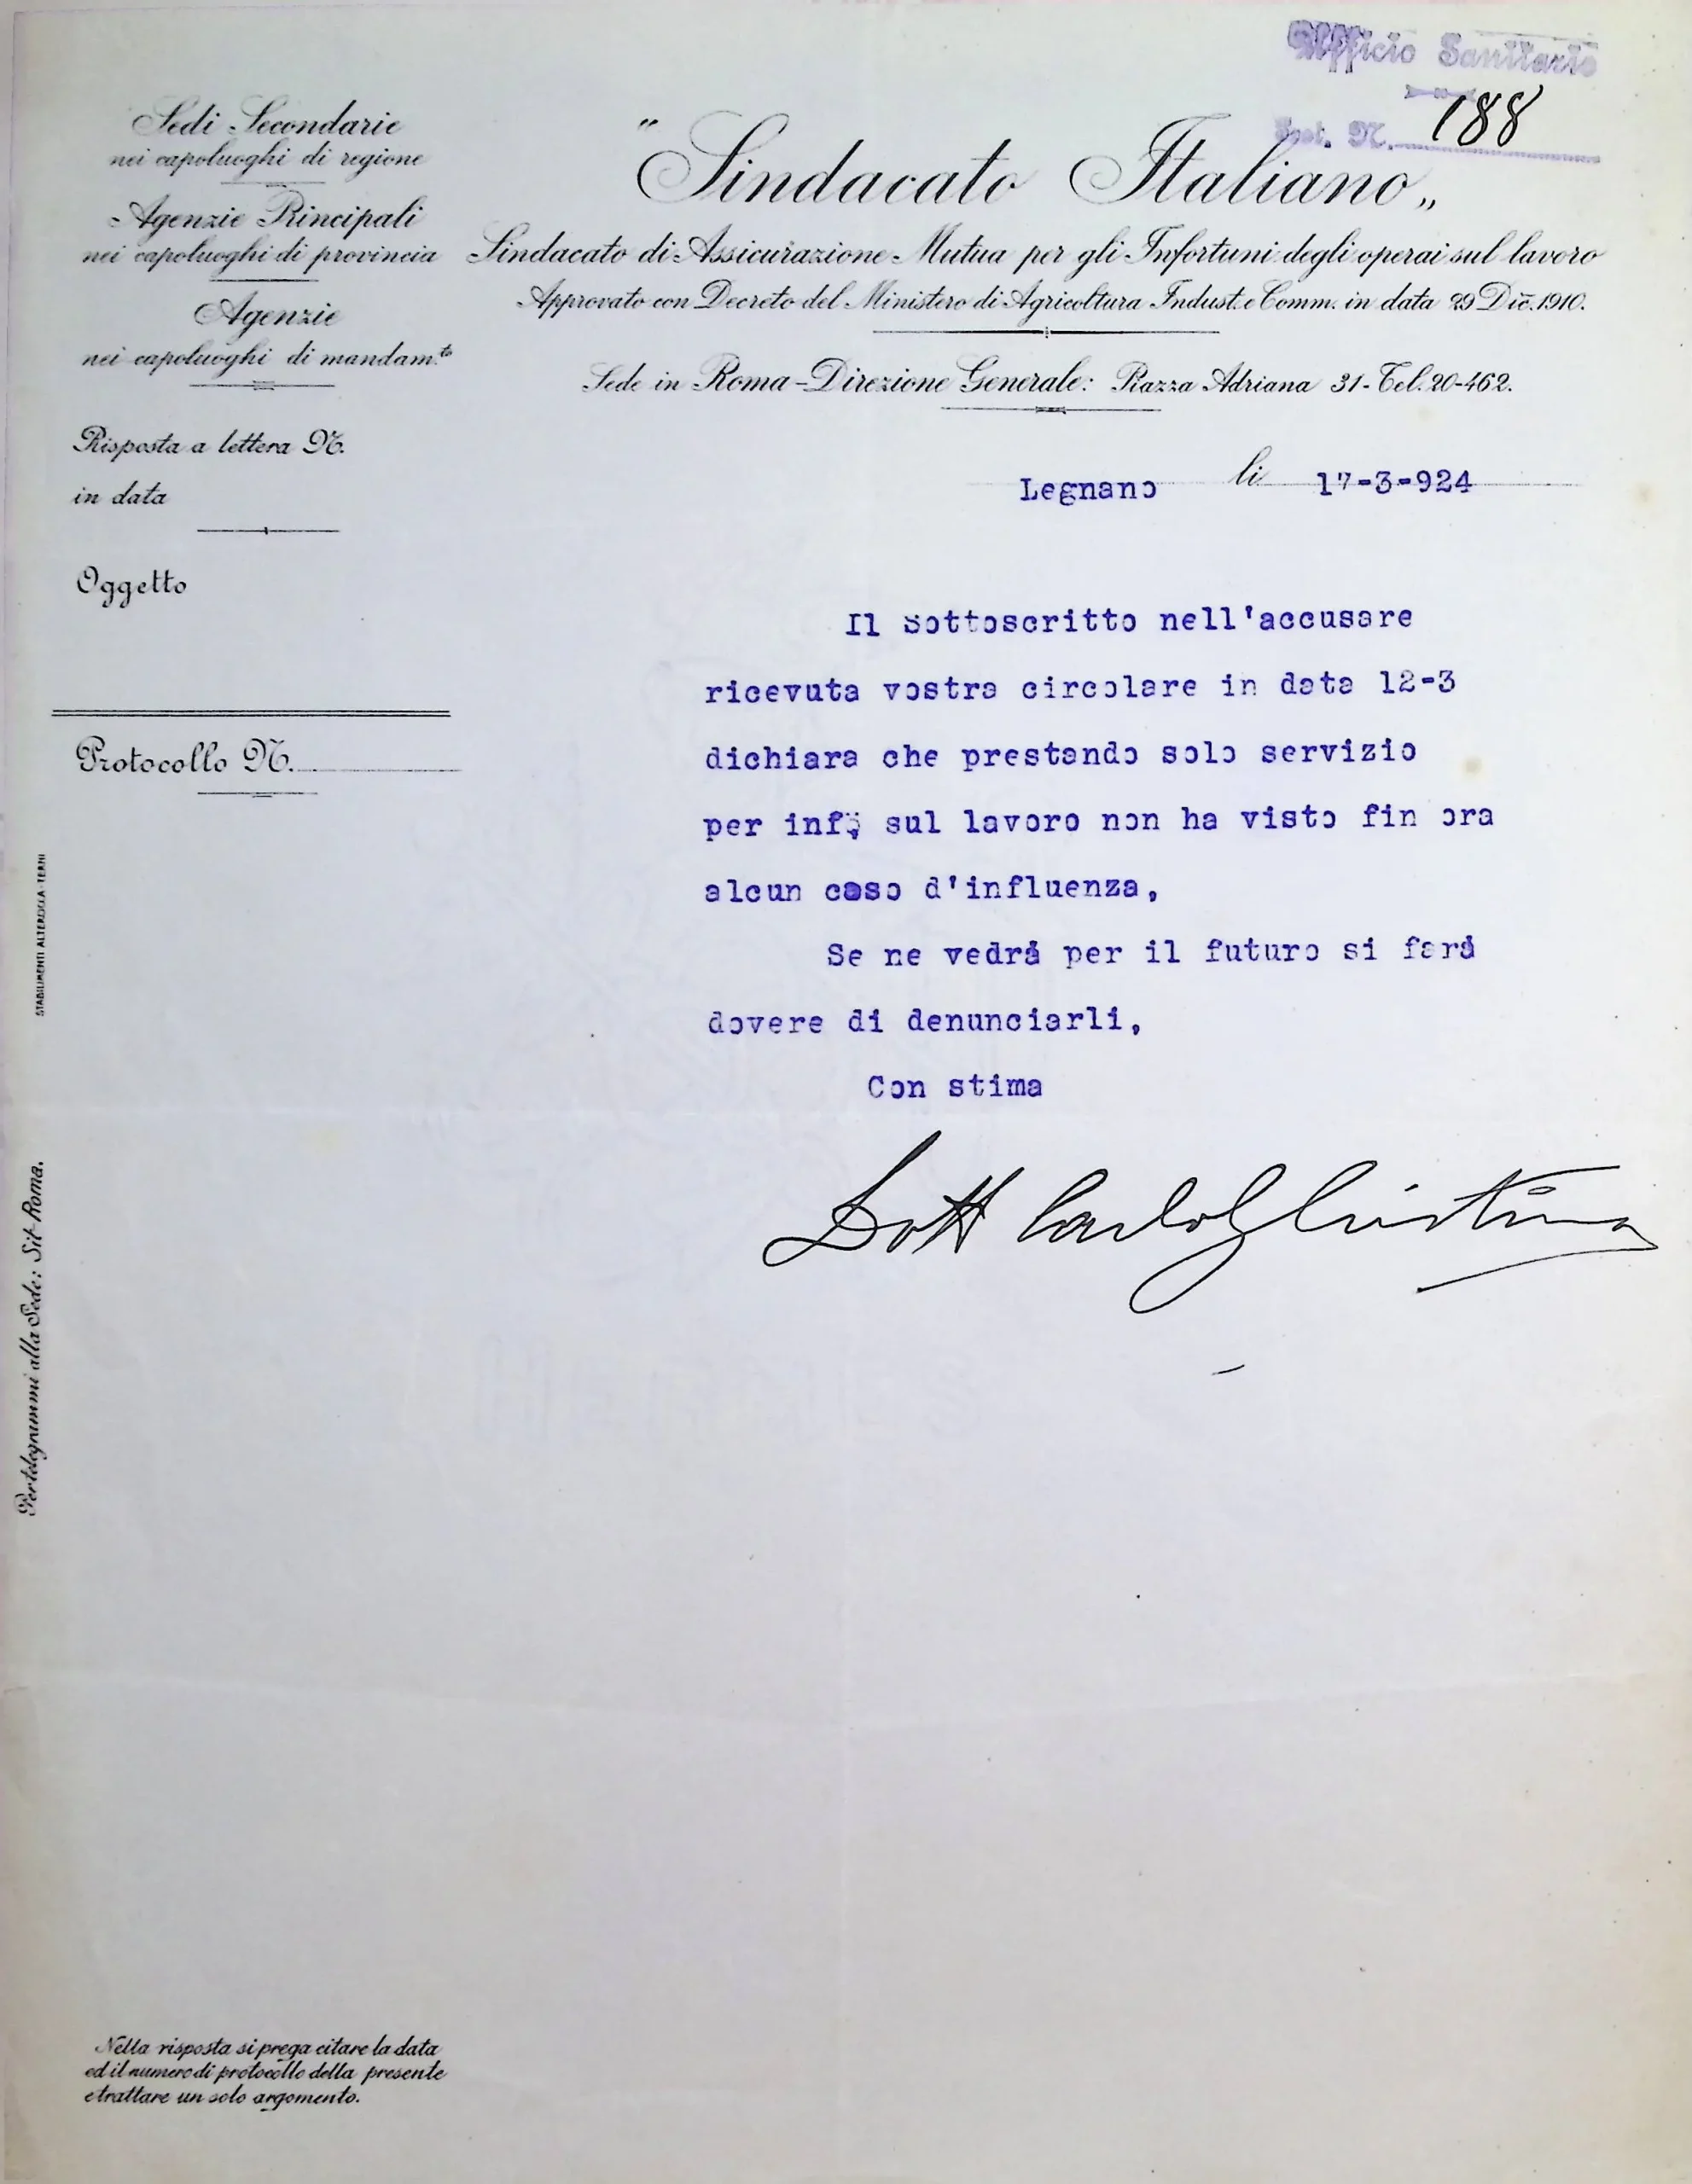 Ufficio Sanitario
Prot. N. 188
Sedi Secondarie
nei capoluoghi di regione
Agenzie Principali
nei capoluoghi di provincia
Agenzie
nei capoluoghi di mandam.to
Risposta a lettera N.
in data
Oggetto
Protocollo N.
"Sindacato Italiano„
Sindacato di Assicurazione Mutua per gli Infortuni degli operai sul lavoro
Approvato con Decreto del Ministero di Agricoltura Indust. e Comm. in data 29 Dic. 1910.
Sede in Roma - Direzione Generale: Piazza Adriana 31 - Tel. 20-462.
Legnano li 17-3-924
Il sottoscritto nell'accusare
ricevuta vostra circolare in data 12-3
dichiara che prestando solo servizio
per inf; sul lavoro non ha visto fin ora
alcun caso d'influenza,
Se ne vedrá per il futuro si fará
dovere di denunciarli,
Con stima
Dott Carlo
STABILIMENTI ALTEROCCA - TERNI
Per telegrammi alla Sede: Sit-Roma.
Nella risposta si prega citare la data
ed il numero di protocollo della presente
e trattare un solo argomento.